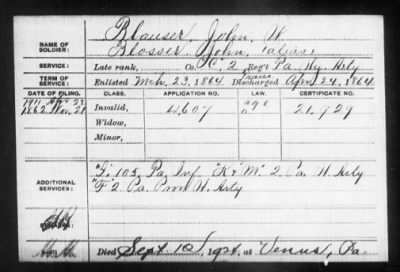 NAME OF SOLDIER: Blauser, John, W.
Blosser, John, (alias)
SERVICE: Late rank, Co. "C", 2 Reg't Pa. Hy. Arty
TERM OF SERVICE: Enlisted Mch. 23, 1864 Trans. Discharged Apr. 24, 1864
DATE OF FILING. CLASS. APPLICATION NO. LAW. CERTIFICATE NO.
1862 Nov. 21 Invalid, 4,607 21,929
Widow,
Minor,
ADDITIONAL SERVICES: "I" 103, Pa. Inf. "K & M" 2 Pa. H. Arty
"F" 2 Pa. Prov. H. Arty
Died Sept 1924, at Venus, Pa.